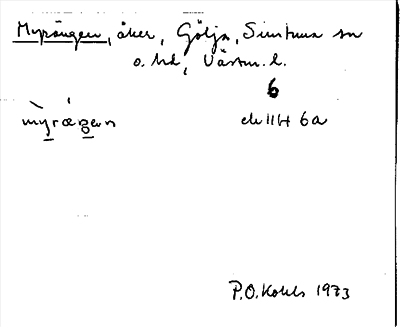 Myrängen, åker, Gölja, Simtuna sn
o. hd, Västm. l.
6
myræŋen
ek 11H 6a
P.O. Kohls 1973